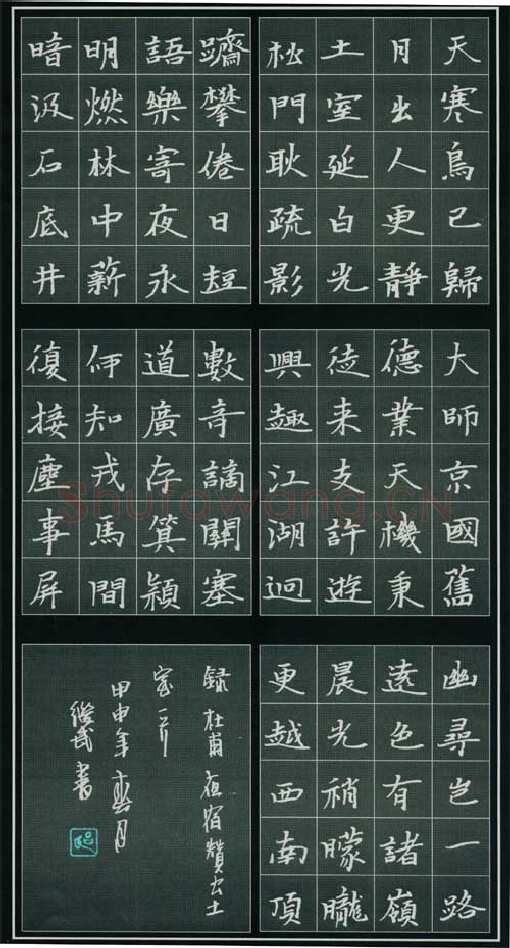 天寒鳥已歸
月出人更靜
土室延白光
松門耿疏影
躋攀倦日短
語樂寄夜永
明燃林中薪
暗汲石底井
大師京國舊
德業天機秉
従来支許遊
興趣江湖迥
數奇謫關塞
道廣存箕穎
何知戎馬間
復接塵事屏
幽尋豈一路
遠色有諸嶺
晨光稍朦朧
更越西南頂
録杜甫夜宿贊公土
室一首
甲申年春月
继武書
Shufawang.CN